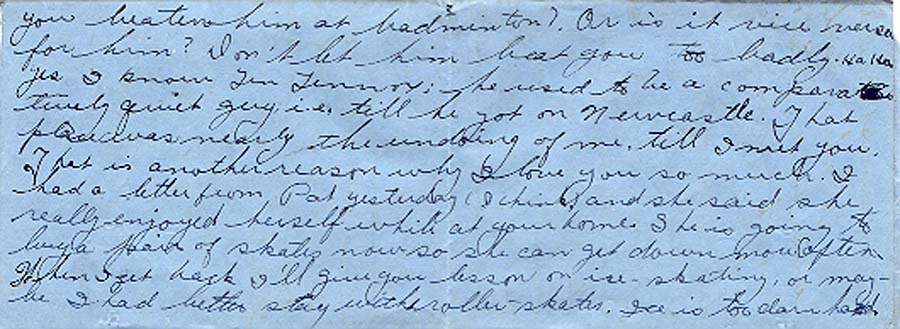 you beaten him at badminton? Or is it vice versa
for him? Don't let him beat you too badly. Ha Ha
yes I know Jim ; he used to be a compara
tively quiet guy i.e. till he got on Newcastle. That
place was nearly the undoing of me, till I met you.
That is another reason why I love you so much. I
had a letter from Pat yesterday (I think) and she said she
really enjoyed herself while at your home. She is going to
buy a pair of skates now so she can get down more often.
When I get back I'll give you lesson on ice-skating, or may-
be I had better stay with roller-skates. Ice is too darn hard